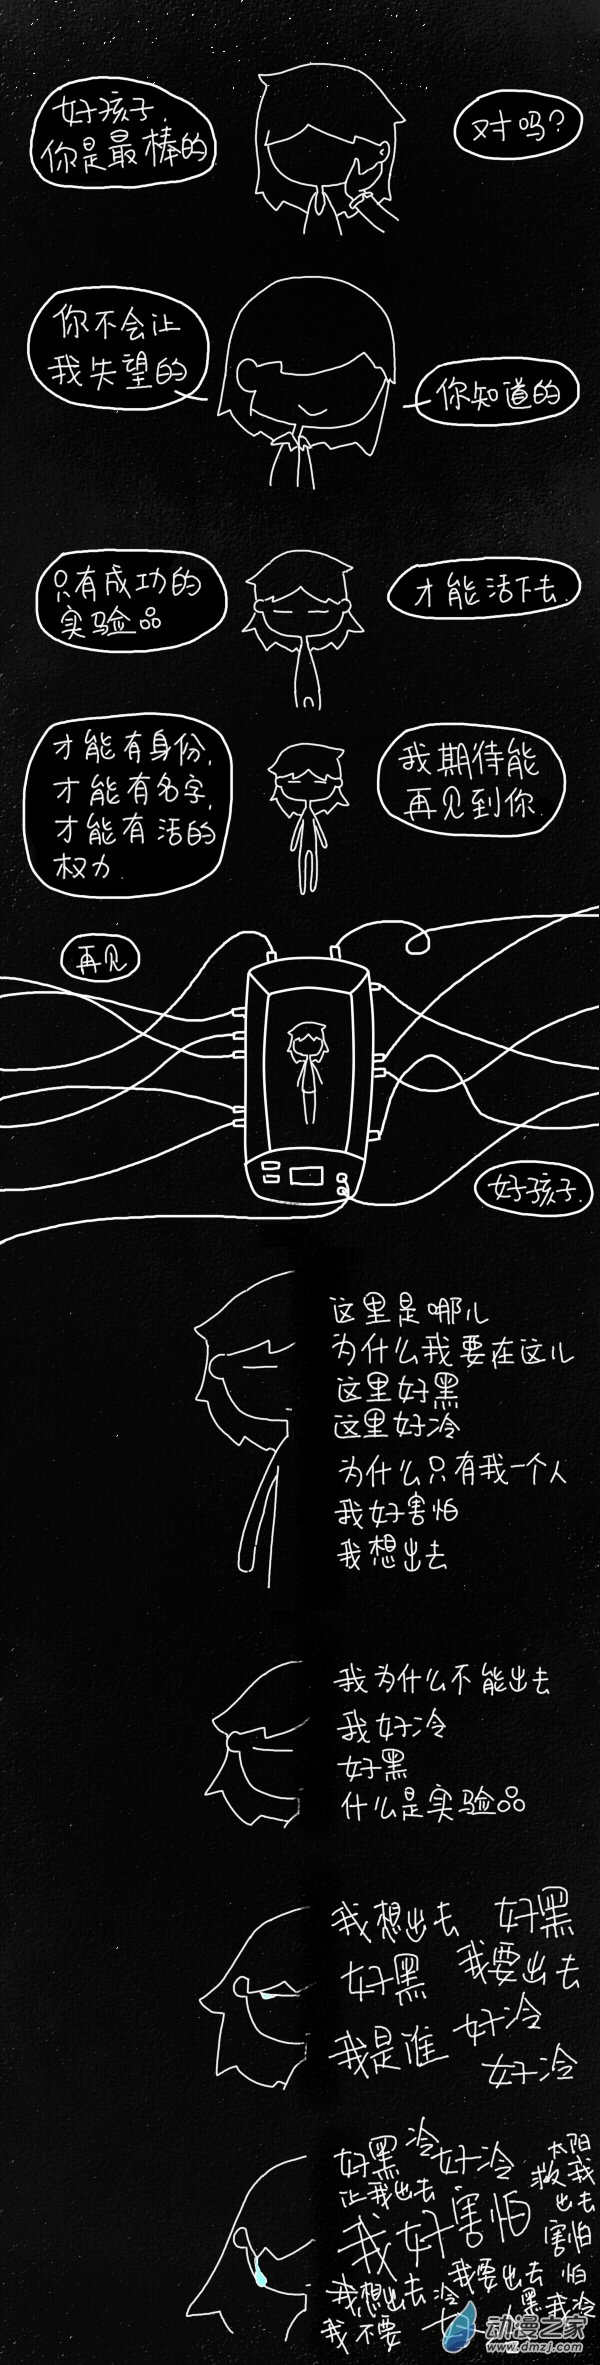 好孩子,
你是最棒的
对吗?
你不会让
我失望的
你知道的
只有成功的
实验品
才能活下去.
才能有身份,
才能有名字,
才能有活的
权力.
我期待能
再见到你.
再见
好孩子.
这里是哪儿
为什么我要在这儿
这里好黑
这里好冷
为什么只有我一个人
我好害怕
我想出去
我为什么不能出去
我好冷
好黑
什么是实验品
我想出去 好黑
好黑 我要出去
我是谁 好冷
好冷
好黑 冷 好冷 太阳
让我出去 救我
出去
我好害怕 害怕
我想出去 冷 我要出去 怕
我不要 黑 我冷
动漫之家
www.dmzj.com